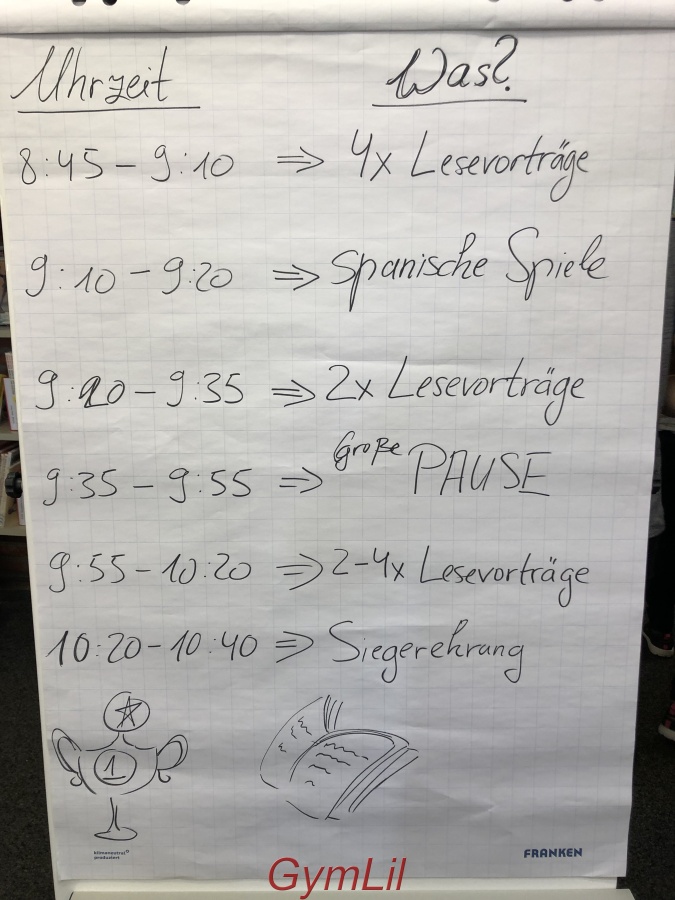 Uhrzeit Was?
8:45 – 9:10 ⇒ 4x Lesevorträge
9:10 – 9:20 ⇒ Spanische Spiele
9:20 – 9:35 ⇒ 2x Lesevorträge
9:35 – 9:55 ⇒ Große PAUSE
9:55 – 10:20 ⇒ 2-4x Lesevorträge
10:20 – 10:40 ⇒ Siegerehrung
1
klimaneutral
produziert
FRANKEN
GymLil